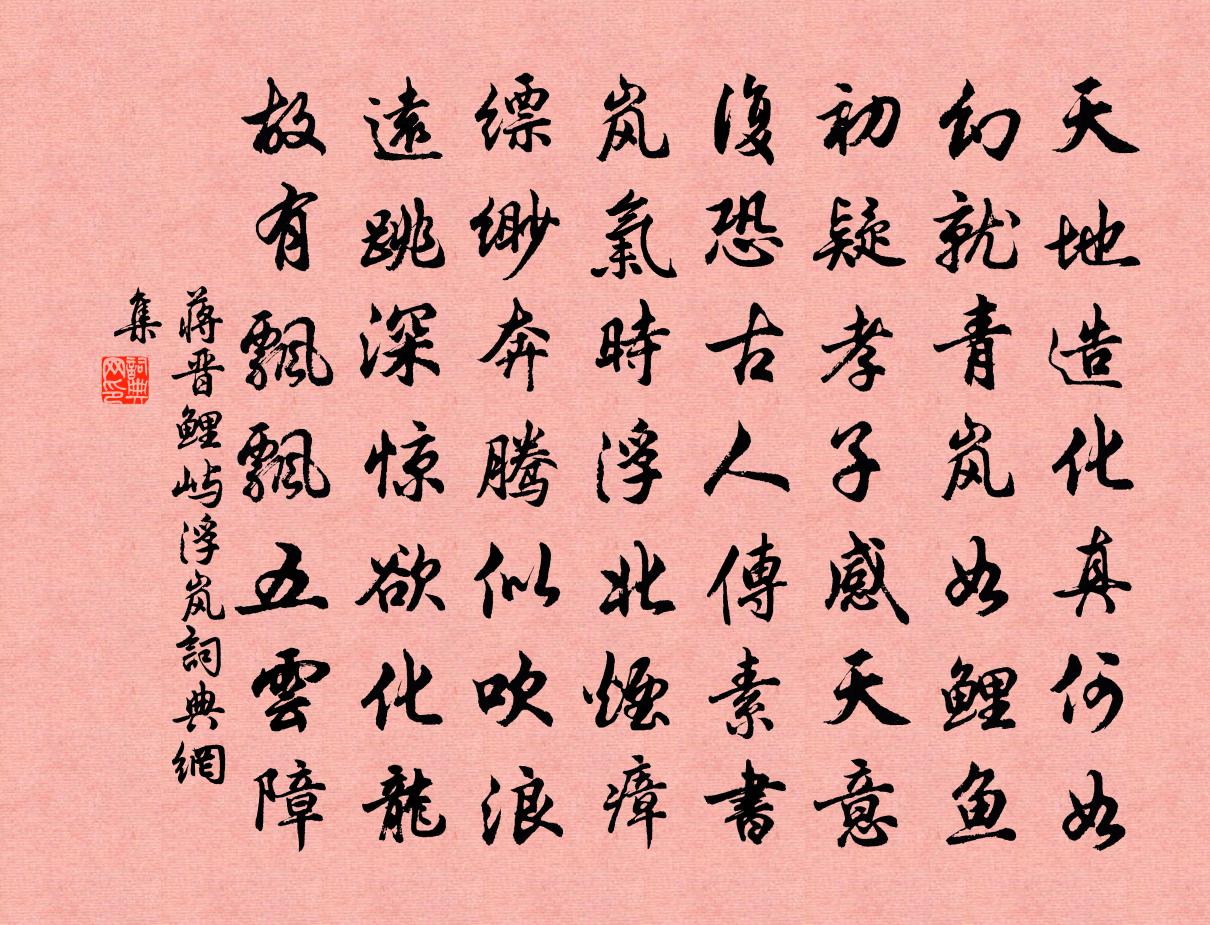 天地造化真何如
幻就青岚如鲤鱼
初疑孝子感天意
復恐古人傳素書
岚氣時浮北煙瘴
缥缈奔腾似吹浪
遠跳深惊欲化龍
故有飄飄五雲障
蒋晋鲤屿浮岚詞典網
集
詞典
网印